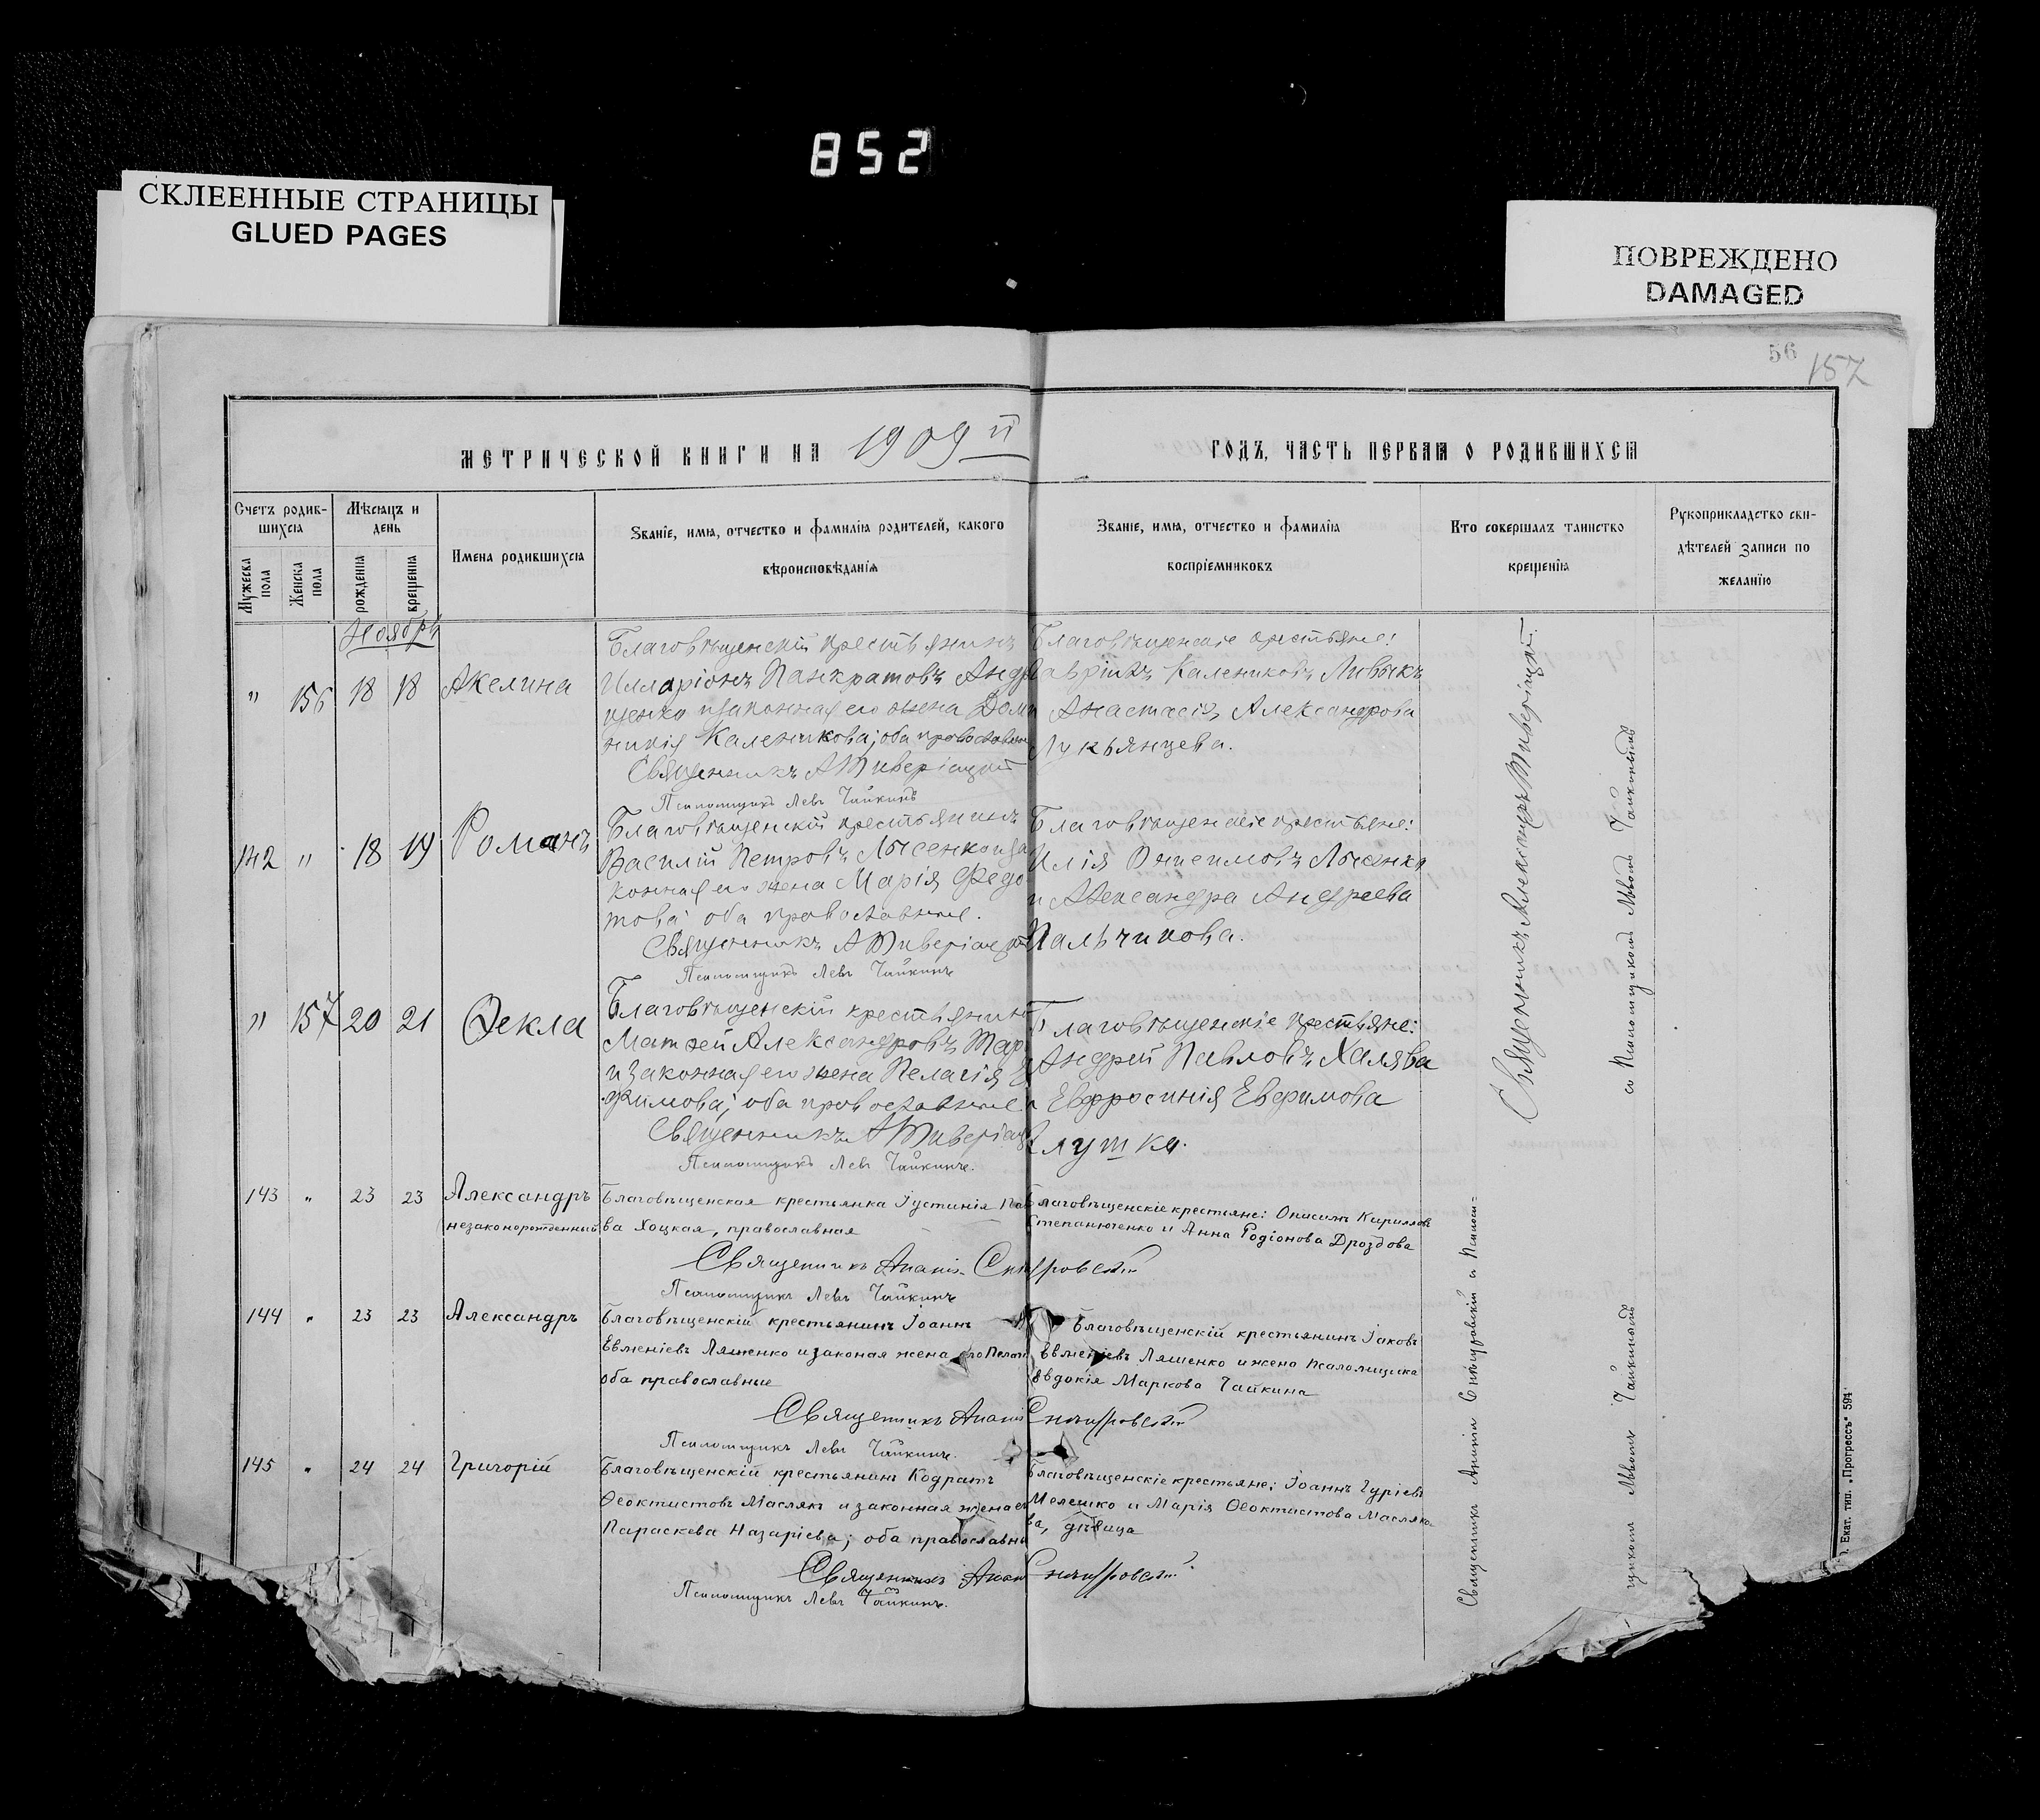 852
СКЛЕЕННЫЕ СТРАНИЦЫ
GLUED PAGES
ПОВРЕЖДЕНО
DAMAGED
56
157
МЕТРИЧЕСКОЙ КНИГИ НА 1909 й
ГОДЪ, ЧАСТЬ ПЕРВАЯ О РОДИВШИХСЯ
Счетъ родив-
шихся
Мѣсяцъ и
день
Имена родившихся
Званіе, имя, отчество и фамилія родителей, какого
вѣроисповѣданія
Званіе, имя, отчество и фамилія
воспріемниковъ
Кто совершалъ таинство
крещенія
Рукоприкладство сви-
дѣтелей записи по
желанію
Мужеска
пола
Женска
пола
рожденія
крещенія
Ноябрь
" 156 18 18 Акелина
Благовѣщенскій крестьянинъ
Илларіонъ Панкратовъ Андр
щенко и законная его жена Дом
никія Каленикова; оба православные
Священникъ А Тиверіацкій
Псаломщикъ Левъ Чайкинъ
Благовѣщенскіе крестьяне:
Гавріилъ Калениковъ Ливыкъ
и Анастасія Александрова
Лукьянцева.
142 " 18 19 Романъ
Благовѣщенскій крестьянинъ
Василій Петровъ Лысенко и за
конная его жена Марія Федо
това; оба православные.
Священникъ А Тиверіацкій
Псаломщикъ Левъ Чайкинъ
Благовѣщенскіе крестьяне:
Илія Онисимовъ Лысенко
и Александра Андреева
Пальчикова.
" 157 20 21 Ѳекла
Благовѣщенскій крестьянинъ
Матѳей Александровъ
и законная его жена Пелагія
фимова; оба православные.
Священникъ А Тиверіацкій
Псаломщикъ Левъ Чайкинъ.
Благовѣщенскіе крестьяне:
Андрей Павловъ Халява
и Евфросинія Евфимова
143 " 23 23 Александръ
незаконорожденный
Благовѣщенская крестьянка Іустинія Пав
ва Хоцкая, православная
Священникъ Ананія
Псаломщикъ Левъ Чайкинъ
Благовѣщенскіе крестьяне: Онисимъ Кирилловъ
Степанюченко и Анна Родіонова Дроздова
144 " 23 23 Александръ
Благовѣщенскій крестьянинъ Іоаннъ
Евменіевъ Ляшенко и законая жена его Пелагія
оба православные
Священникъ Ананія
Псаломщикъ Левъ Чайкинъ.
Благовѣщенскій крестьянинъ Іаковъ
Евменіевъ Ляшенко и жена псаломщика
Евдокія Маркова Чайкина
145 " 24 24 Григорій
Благовѣщенскій крестьянинъ Кодратъ
Ѳеоктистовъ Маслякъ и законная жена его
Параскева Назаріева; оба православны
Священникъ Ананія
Псаломщикъ Левъ Чайкинъ.
Благовѣщенскіе крестьяне: Іоаннъ Гуріевъ
Мелешко и Марія Ѳеоктистова Масляко
ва, дѣвица
Священникъ Александръ Тиверіацкій.
съ Псаломщикомъ Львомъ Чайкинымъ
Священникъ Ананія и Псалом-
щикомъ Львомъ Чайкинымъ
Екат. тип. „Прогрессъ" 594